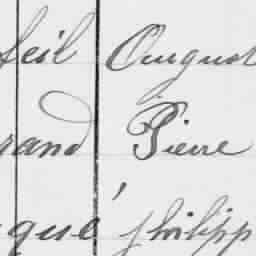 feil August
rand Pierre
qué philipp